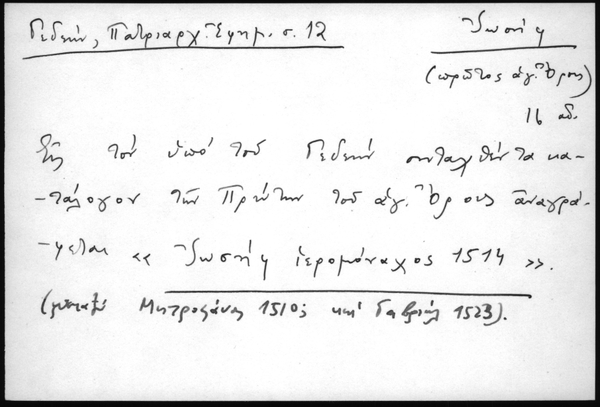 Γεδεών, Πατριαρχ. Ἐφημ. σ. 12
Ἰωσήφ
(πρῶτος ἁγ. Ὄρους)
16 αἰ.
Εἰς τὸν ὑπὸ τοῦ Γεδεὼν συνταχθέντα κα-
-τάλογον τῶν Πρώτων τοῦ ἁγ. Ὄρους ἀναγρά-
-φεται «Ἰωσήφ ἱερομόναχος 1514».
(μεταξὺ Μητροφάνους 1510; καὶ Γαβριήλ 1523).